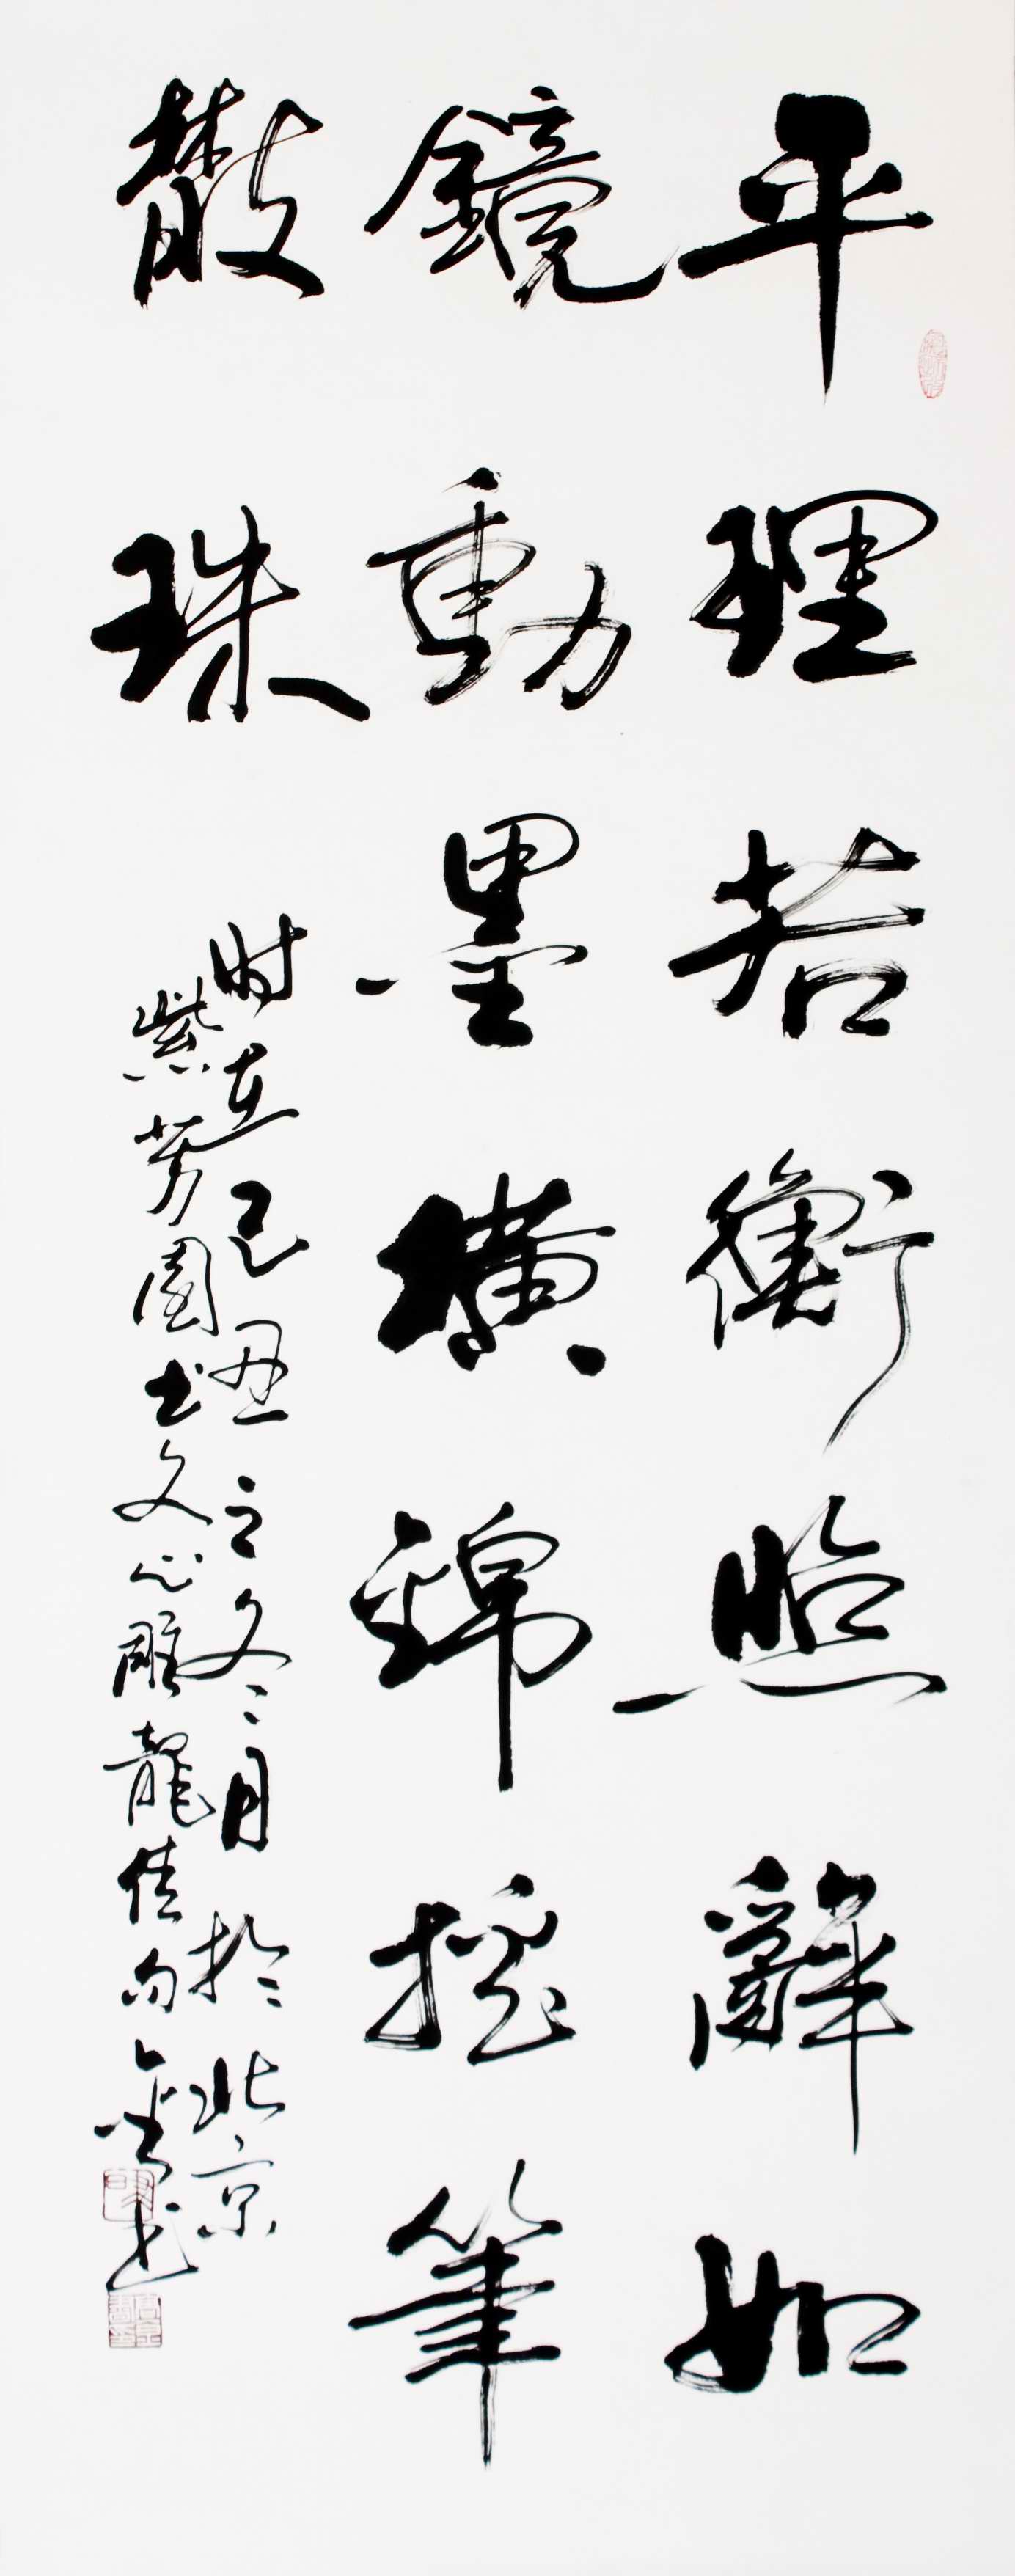 平理若衡照辭如
鏡動墨橫錦搖筆
散珠
時在己丑之冬月於北京
紫芳園书文心雕龍佳句